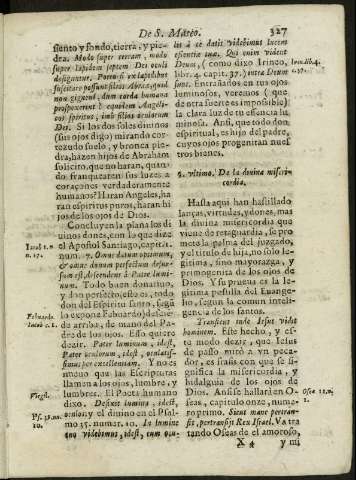 De S. Mateo.
327
siento y fondo, tierra, y pie-
dra. Modo super terram, modo
super lapidem septem Dei oculi
designantur. Potens si ex lapidibus
suscitare possunt filios Abræ, quod
non gignens, dum corda humana
posponerent è equidem Angeli-
cos spiritus, imò filios oculorum
Dei. Si los dos soles divinos
(sus ojos digo) mirando cor-
tezudo suelo, y bronca pie-
dra, hazen hijos de Abraham
solicito, que no haran, quan-
do franquearen sus luzes a
coraçones verdaderamente
humanos? Haran Angeles, ha-
ran espiritus puros, haran hi-
jos de los ojos de Dios.
Concluyen la plana los di-
uinos dones, con lo que dize
el Apostol Santiago, capit. 1.
num. 7. Omne datum optimum,
& omne donum perfectum desur-
sum est, descendens à Patre lumi-
num. Todo buen donatiuo,
y don perfecto, este es, todo
don del Espiritu santo, segũ
lo expone Febuardo) descie-
de arriba, de mano del Pa-
dre de los ojos. Esso quiere
dezir. Pater luminum, idest,
Pater oculorum, idest, oculatis-
simus per excellentiam. Y no es
mucho que las Escripturas
llamen a los ojos, lumbre, y
lumbres. El Poeta humano
dixo. Defixit lumina, idest,
oculos: y el diuino en el Psal-
mo 35. numer. 10. In lumine
tuo videbimus, idest, cum ocu-
Iacob 1. n.
n. 17.
Febuardo.
Iacob c. 1.
Virgil.
Ps. 35. nu.
10.
los à te datis videbimus lucem
essentiæ tuæ. Qui enim vident
Deum, (como dixo Irineo,
libr. 4. capit. 37.) intra Deum
sunt. Entrañados en tus ojos
luminosos, veremos (que
de otra fuerte es impossible)
la clara luz de tu essencia lu-
minosa. Assi, que todo don
espiritual, es hijo del padre,
cuyos ojos progenitan nues-
tros bienes.
Iren. lib. 4.
c. 37.
§. vltimo. De la diuina miseri-
cordia.
Hasta aqui han hasillado
lanças, virtudes, y dones, mas
la diuina misericordia que
viene de retaguardia, se pro-
meta la palma del juzgado,
y el titulo de hija, no solo le-
gitima, sino mayorazga, y
primogenita de los ojos de
Dios. Y su prueua es la le-
gitima pesulla del Euange-
lio, segun la comun inteli-
gencia de los santos.
Transiens inde Iesus vidit
hominem. Este hecho, y es-
te modo dezir, que Iesus
de passo mirò a vn peca-
dor, es frasis con que se si-
gnifica la misericordia, y
hidalguia de los ojos de
Dios. Assi se hallarà en O-
seas, capitulo onze, nume-
ro primo. Sicut mane pertran-
sijt, pertransijt Rex Israel. Va tra
tando Oseas de el amoroso,
Osea 11. n.
1.
X 4
y mi